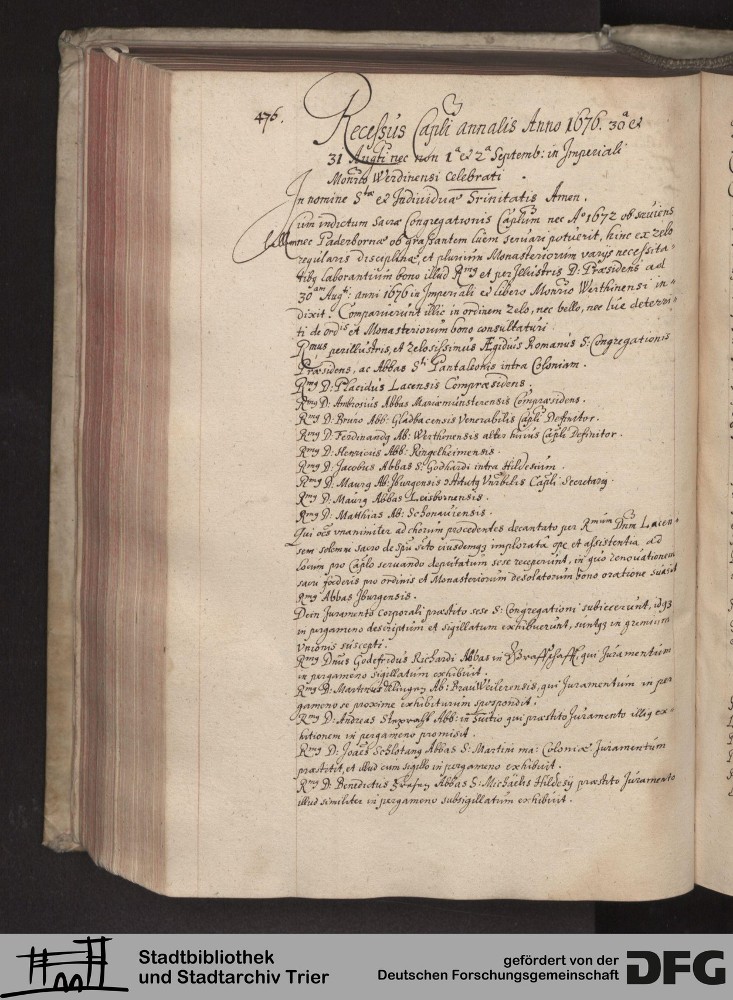 476.
Recessus Capli annalis Anno 1676. 30a et
31 Augti nec non 1a et 2a Septemb: in Imperiali
Monrio Werdinensi celebrati.
In nomine Stae et Individuae Trinitatis Amen.
Cum indictum sacrae Congregationis Caplum nec Ao 1672 ob saeviens
bellum nec Paderbornae ob grassantem luem servari potuerit, hinc ex zelo
regularis disciplinae, et plurium Monasteriorum varys necessita-
tibq laborantium bono illud Rmq et perillustris D: Praesidens ad
30am Augti: anni 1676 in Imperiali et libero Monrio Werthinensi in-
dixit. Comparuerunt illic in ordinem zelo, nec bello, nec lue deterri-
ti de ordis et Monasteriorum bono consultaturi.
Rmus perillustris, et zelosissimus Ægidius Romanus S: Congregationis
Praesidens, ac Abbas Sti Pantaleonis intra Coloniam.
Rmq D: Placidus Lacensis Compraesidens.
Rmq D: Ambrosius Abbas Mariaemünsterensis Compraesidens.
Rmq D: Bruno Abb: Gladbacensis Venerabilis Capli Definitor.
Rmq D: Ferdinandq Ab: Werthinensis alter huius Capli Definitor.
Rmq D: Henricus Abb: Ringelheimensis.
Rmq D: Jacobus Abbas S: Godhardi intra Hildesium.
Rmq D: Maurq Ab: Iburgensis Vnrbilis Capli Secretariq.
Rmq D: Maurq Abbas Leisbornensis.
Rmq D: Matthias Ab: Schonauiensis.
Qui oes vnanimiter ad chorum procedentes decantato per Rmum Dnm Lacen-
sem solemni sacro de Spu Scto eiusdemq3 implorata ope et assistentia ad
locum pro Caplo seruando deputatum sese receperunt, in quo renouationem
sacri foederis pro ordinis et Monasteriorum desolatorum bono oratione suasit
Rmq Abbas Iburgensis.
Dein Juramento corporali praestito sese S: Congregationi subiecerunt, idq3
in pergameno descriptum et sigillatum exhibuerunt, suntq3 in gremium
vnionis suscepti.
Rmq Dnus Godefridus Richardi Abbas in Graffschafft, qui Juramentum
in pergameno sigillatum exhibuit.
Rmq D: Martinus Ab: BrauWeilerensis, qui Juramentum in per
gameno se proxime exhibiturum spospondit.
Rmq D: Andreas Abb: in Tuitio qui praestito Juramento illiq ex-
hibitionem in pergameno promisit.
Rmq D: Joaes Schlotang Abbas S: Martini mai: Coloniae Juramentum
praestitit, et illud cum sigillo in pergameno exhibuit.
Rmq D: Benedictus Abbas S: Michaelis Hildesy praestito Juramento
illud similiter in pergameno subsigillatum exhibuit.
Stadtbibliothek
und Stadtarchiv Trier
gefördert von der
Deutschen Forschungsgemeinschaft
DFG